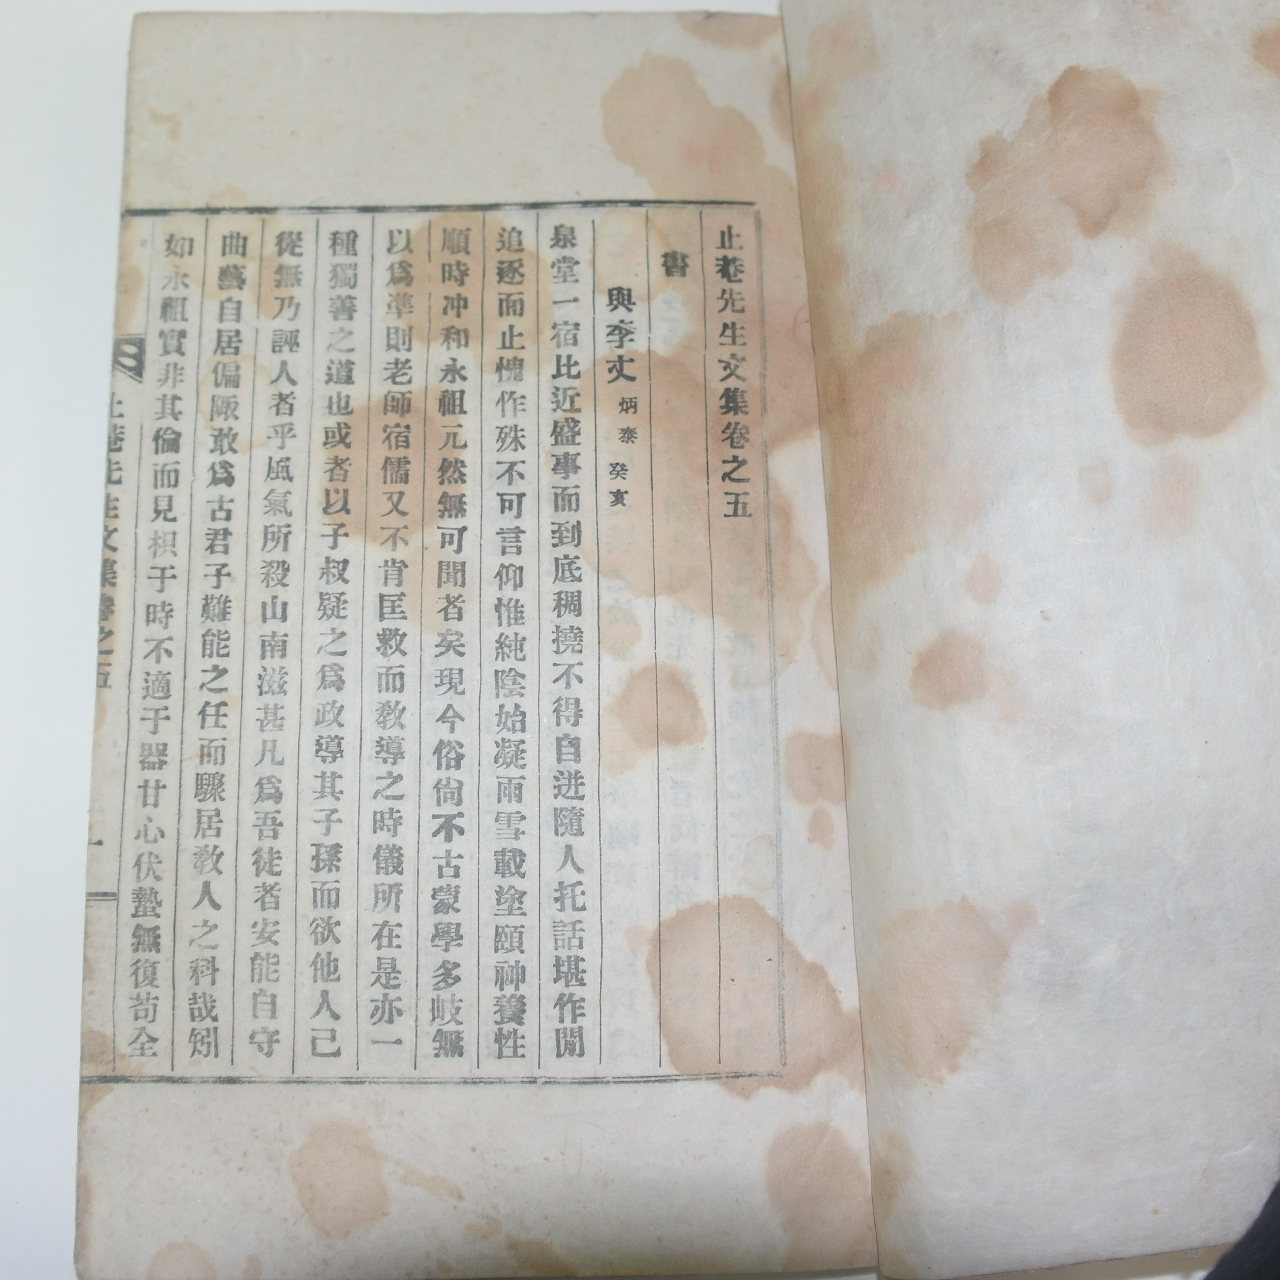 止菴先生文集卷之五
書
與李丈炳泰癸亥
泉堂一宿比近盛事而到底稠撓不得自迸隨人托話堪作閒
追逐而止愧怍殊不可言仰惟純陰始凝雨雪載塗頤神養性
順時冲和永祖元然無可聞者矣現今俗尙不古蒙學多岐無
以爲準則老師宿儒又不肯匡救而敎導之時儀所在是亦一
種獨善之道也或者以子叔疑之爲政導其子孫而欲他人己
從無乃誣人者乎風氣所殺山南滋甚凡爲吾徒者安能自守
曲藝自居偏陬敢爲古君子難能之任而驟居敎人之科哉矧
如永祖實非其倫而見枳于時不適于器甘心伏蟄無復苟全
止菴先生文集卷之五 一